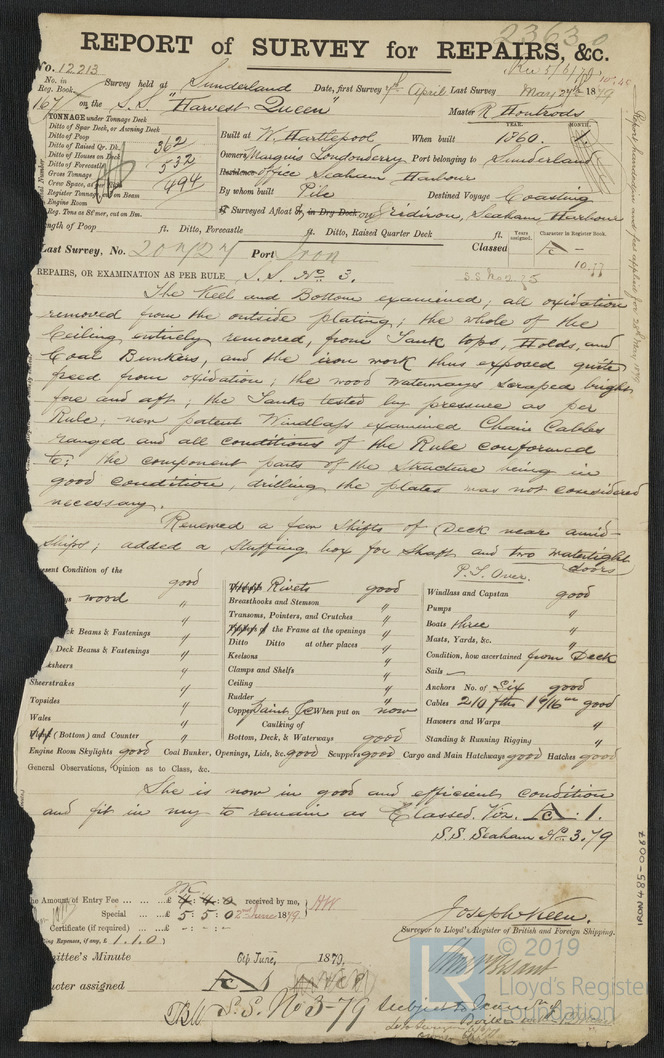 23630
REPORT of SURVEY for REPAIRS, &c.
No. 12213
Rec 5/6/79
No. in Reg. Book. Survey held at Sunderland Date, first Survey 4th April Last Survey May 24th 1879
167 on the S.S. "Harvest Queen" Master R Hontrods
TONNAGE under Tonnage Deck
Ditto of Spar Deck, or Awning Deck
Ditto of Poop
Ditto of Raised Qr. Dk. 362
Ditto of Houses on Deck
Ditto of Forecastle 532
Gross Tonnage
Crew Space, as per Rule 494
Register Tonnage, as on Beam
Engine Room
Reg. Tons as St'mer, cut on Bm.
YEAR. MONTH.
Built at W. Hartlepool When built 1860.
Owners Marquis Londonderry Port belonging to Sunderland
Residence Office Seaham Harbour
By whom built Pile Destined Voyage Coasting
If Surveyed Afloat or in Dry Dock on Gridiron, Seaham Harbour
Length of Poop ft. Ditto, Forecastle ft. Ditto, Raised Quarter Deck ft.
Years assigned. Character in Register Book.
Last Survey, No. Port Iron Classed A –
10.77
REPAIRS, OR EXAMINATION AS PER RULE, S.S. No. 3.
The Keel and Bottom examined; all oxidation
removed from the outside plating; the whole of the
Ceiling entirely removed, from Tank tops, Holds, and
Coal Bunkers, and the iron work thus exposed quite
freed from oxidation; the wood Waterways scraped bright
fore and aft; the Tanks tested by pressure as per
Rule; new patent Windlass examined Chain Cables
ranged and all conditions of the Rule conformed
to: the component parts of the Structure being in
good condition, drilling the plates was not considered
necessary.
Renewed a few Shifts of Deck near amid-
ships; added a Stuffing box for Shaft and two watertight
doors
P.T. Over.
Present Condition of the
good
wood "
Deck Beams & Fastenings "
Deck Beams & Fastenings "
Sheerstrakes "
Topsides "
Wales "
(Bottom) and Counter "
Rivets good
Breasthooks and Stemson "
Transoms, Pointers, and Crutches "
of the Frame at the openings "
Ditto Ditto at other places "
Keelsons "
Clamps and Shelfs "
Ceiling "
Rudder "
Copper Paint &c When put on now
Caulking of
Bottom, Deck, & Waterways good
Windlass and Capstan good
Pumps "
Boats three "
Masts, Yards, &c. "
Condition, how ascertained from Deck
Sails –
Anchors No. of Six good
Cables 210 fths 1 6/16 in good
Hawsers and Warps "
Standing & Running Rigging "
Engine Room Skylights good Coal Bunker, Openings, Lids, &c. good Scuppers good Cargo and Main Hatchways good Hatches good
General Observations, Opinion as to Class, &c.
She is now in good and efficient condition
and fit in my to remain as Classed. Viz. A.1.
S.S. Seaham No. 3.79
The Amount of Entry Fee ... £ 4:4:0 received by me,
Special ... £ 5:5:0 2nd June 1879.
Certificate (if required) ... £ - : - : -
ling Expenses, if any, £ 1.1.0
Joseph Keen.
Surveyor to Lloyd's Register of British and Foreign Shipping.
Committee's Minute 6th June, 1879.
Character assigned A 1
S.S. No 3-79 Subject to
© 2019
Lloyd's Register
Foundation
LR